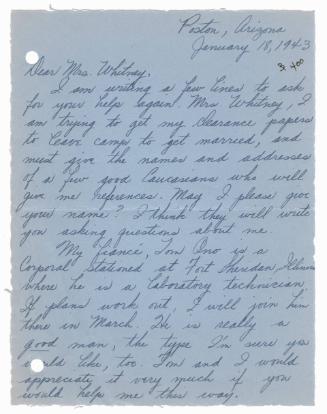 Poston, Arizona
January 18, 1943
Dear Mrs. Whitney,
I am writing a few lines to ask
for your help again. Mrs Whitney, I
am trying to get my clearance papers
to leave camp to get married, and
must give the names and addresses
of a few good Caucasians who will
give me references. May I please give
your name? I think they will write
you asking questions about me.
My fiance, Tom Ono is a
Corporal stationed at Fort Sheridan, Illinois
where he is a laboratory technician.
If plans work out, I will join him
there in March. He is really a
good man, the type I'm sure you
would like, too. Tom and I would
appreciate it very much if you
would help me this way.